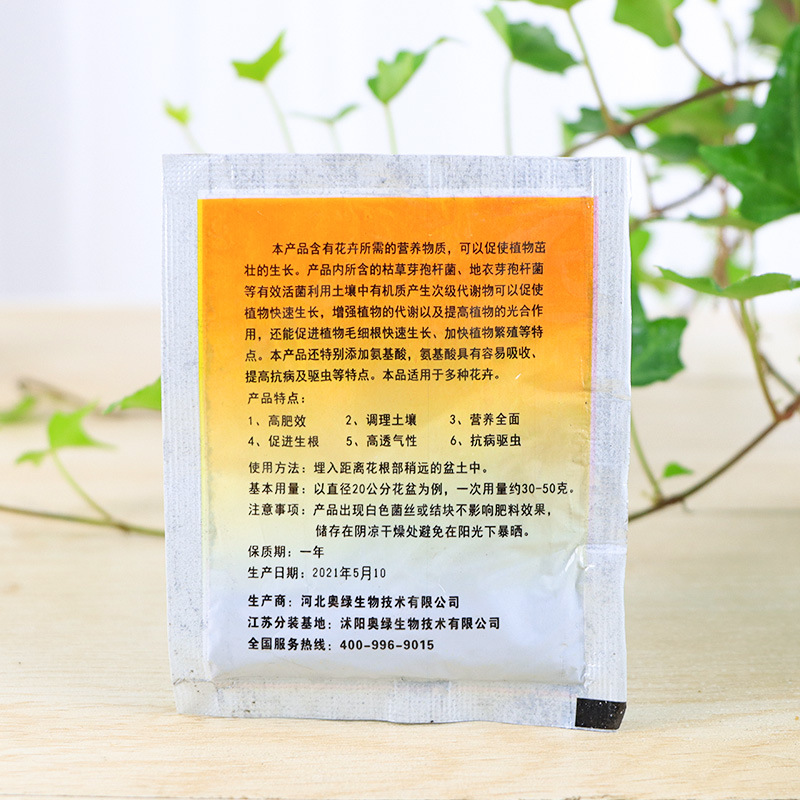 本产品含有花卉所需的营养物质，可以促使植物茁
壮的生长。产品内所含的枯草芽孢杆菌、地衣芽孢杆菌
等有效活菌利用土壤中有机质产生次级代谢物可以促使
植物快速生长，增强植物的代谢以及提高植物的光合作
用，还能促进植物毛细根快速生长、加快植物繁殖等特
点。本产品还特别添加氨基酸，氨基酸具有容易吸收、
提高抗病及驱虫等特点。本品适用于多种花卉。
产品特点：
1、高肥效 2、调理土壤 3、营养全面
4、促进生根 5、高透气性 6、抗病驱虫
使用方法：埋入距离花根部稍远的盆土中。
基本用量：以直径20公分花盆为例，一次用量约30-50克。
注意事项：产品出现白色菌丝或结块不影响肥料效果，
储存在阴凉干燥处避免在阳光下暴晒。
保质期：一年
生产日期：2021年5月10
生产商：河北奥绿生物技术有限公司
江苏分装基地：沭阳奥绿生物技术有限公司
全国服务热线：400-996-9015